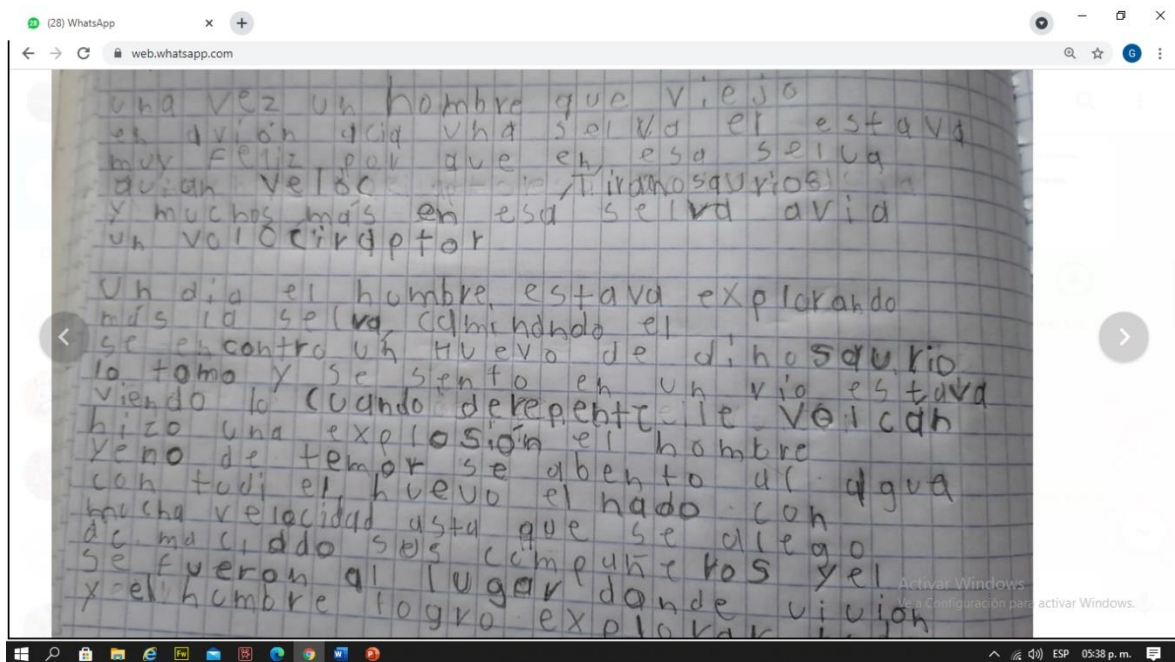 (28) WhatsApp
web.whatsapp.com
G
una vez un hombre que viejo
en avión acia una selva el estava
muy feliz por que en esa selva
avian veloc Tiranosaurios
y muchos más en esa selva avia
un velocirdptor
un dia el hombre estava explorando
más la selva caminando el
se encontro un Huevo de dinosaurio
lo tomo y se sento en un rio estava
viendo lo cuando derepente le volcan
hizo una explosión el hombre
yeno de temor se abento al agua
con tudi el huevo el nado con
mucha velocidad asta que se alego
sus compañeros yel
se fueron al lugar donde vivion
y el hombre logro explorar
Activar Windows
Ve a Configuración para activar Windows.
Fw
ESP 05:38 p. m.